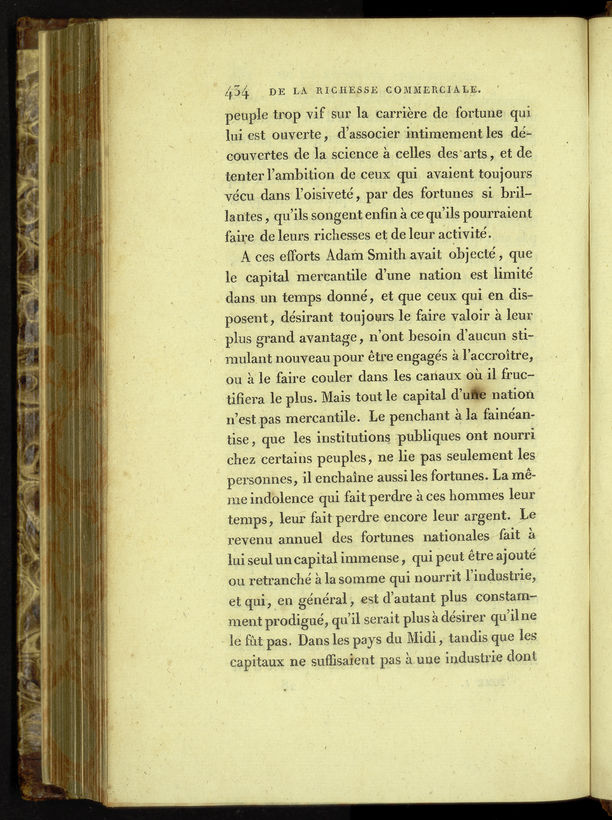 434 DE LA RICHESSE COMMERCIALE.
peuple trop vif sur la carrière de fortune qui
lui est ouverte, d'associer intimement les dé-
couvertes de la science à celles des arts, et de
tenter l'ambition de ceux qui avaient toujours
vécu dans l'oisiveté, par des fortunes si bril-
lantes, qu'ils songent enfin à ce qu'ils pourraient
faire de leurs richesses et de leur activité.
A ces efforts Adam Smith avait objecté, que
le capital mercantile d'une nation est limité
dans un temps donné, et que ceux qui en dis-
posent, désirant toujours le faire valoir à leur
plus grand avantage, n'ont besoin d'aucun sti-
mulant nouveau pour être engagés à l'accroître,
ou à le faire couler dans les canaux où il fruc-
tifiera le plus. Mais tout le capital d'une nation
n'est pas mercantile. Le penchant à la fainéan-
tise, que les institutions publiques ont nourri
chez certains peuples, ne lie pas seulement les
personnes, il enchaîne aussi les fortunes. La mê-
me indolence qui fait perdre à ces hommes leur
temps, leur fait perdre encore leur argent. Le
revenu annuel des fortunes nationales fait à
lui seul un capital immense, qui peut être ajouté
ou retranché à la somme qui nourrit l'industrie,
et qui, en général, est d'autant plus constam-
ment prodigué, qu'il serait plus à désirer qu'il ne
le fût pas. Dans les pays du Midi, tandis que les
capitaux ne suffisaient pas à une industrie dont